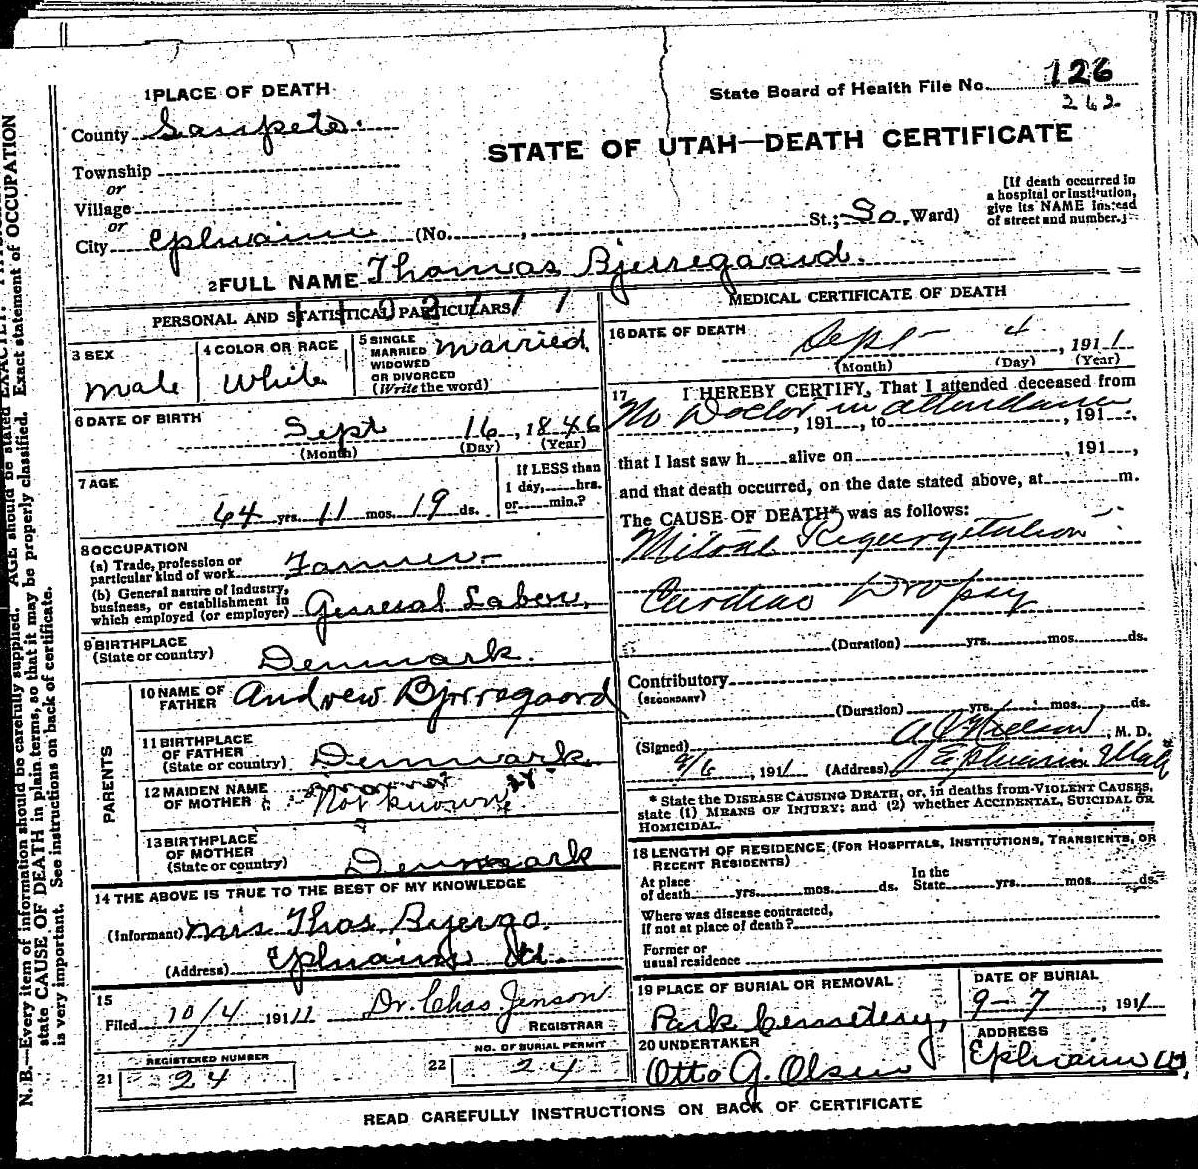 1 PLACE OF DEATH
State Board of Health File No. 126
262
County Sanpete.
STATE OF UTAH—DEATH CERTIFICATE
Township
or
Village
or
City Ephraim (No. , St.; So. Ward)
[If death occurred in
a hospital or institution,
give its NAME instead
of street and number.]
2 FULL NAME Thomas Bjerregaard.
PERSONAL AND STATISTICAL PARTICULARS
3 SEX
Male
4 COLOR OR RACE
White
5 SINGLE
MARRIED
WIDOWED
OR DIVORCED
(Write the word)
Married
6 DATE OF BIRTH
Sept 16, 1846
(Month) (Day) (Year)
7 AGE
64 yrs. 11 mos. 19 ds.
If LESS than
1 day, hrs.
or min.?
8 OCCUPATION
(a) Trade, profession or
particular kind of work Farmer
(b) General nature of industry,
business, or establishment in
which employed (or employer) General Labor.
9 BIRTHPLACE
(State or country) Denmark.
PARENTS
10 NAME OF
FATHER Andrew Bjerregaard
11 BIRTHPLACE
OF FATHER
(State or country) Denmark.
12 MAIDEN NAME
OF MOTHER Not known
13 BIRTHPLACE
OF MOTHER
(State or country) Denmark
14 THE ABOVE IS TRUE TO THE BEST OF MY KNOWLEDGE
(Informant) Mrs Thos Bjerga
(Address) Ephraim Ut.
15
Filed 10/4 1911 Dr. Chas Jenson
REGISTRAR
REGISTERED NUMBER
21 24
NO. OF BURIAL PERMIT
22 24
MEDICAL CERTIFICATE OF DEATH
16 DATE OF DEATH
Sept 4, 1911
(Month) (Day) (Year)
17 I HEREBY CERTIFY, That I attended deceased from
No Doctor in attendance , 191 , to , 191 ,
that I last saw h alive on , 191 ,
and that death occurred, on the date stated above, at m.
The CAUSE OF DEATH* was as follows:
Mitral Regurgitation
Cardiac Dropsy
(Duration) yrs. mos. ds.
Contributory
(SECONDARY)
(Duration) yrs. mos. ds.
(Signed) Nielson, M. D.
9/6, 1911 (Address) Ephraim Utah
* State the DISEASE CAUSING DEATH, or, in deaths from VIOLENT CAUSES,
state (1) MEANS OF INJURY; and (2) whether ACCIDENTAL, SUICIDAL OR
HOMICIDAL.
18 LENGTH OF RESIDENCE (FOR HOSPITALS, INSTITUTIONS, TRANSIENTS, OR
RECENT RESIDENTS)
At place
of death yrs. mos. ds.
In the
State yrs. mos. ds.
Where was disease contracted,
if not at place of death?
Former or
usual residence
19 PLACE OF BURIAL OR REMOVAL
Park Cemetery,
DATE OF BURIAL
9-7, 1911
20 UNDERTAKER
Otto G. Olsen
ADDRESS
Ephraim U.
READ CAREFULLY INSTRUCTIONS ON BACK OF CERTIFICATE
N. B.—Every item of information should be carefully supplied. AGE should be stated EXACTLY.
state CAUSE OF DEATH in plain terms, so that it may be properly classified. Exact statement of OCCUPATION
is very important. See instructions on back of certificate.